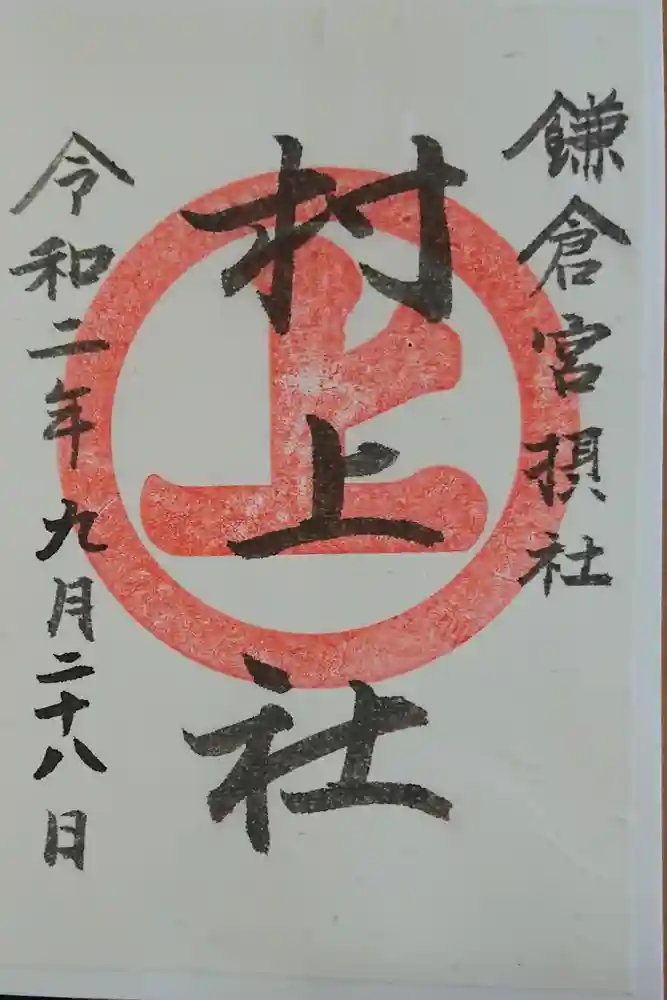 鎌倉宮摂社
村上社
上
令和二年九月二十八日